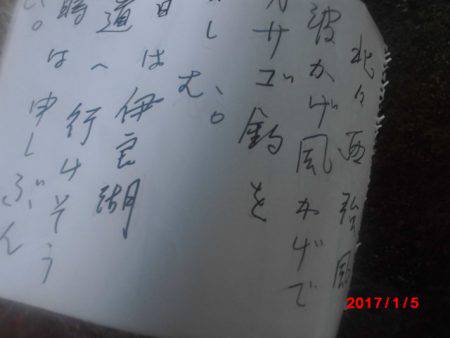 北々西強風
波かげ風かげで
カサゴ釣を
しむ。
日は伊良湖
道へ行けそう
は申しぶん
い。
2017/1/5